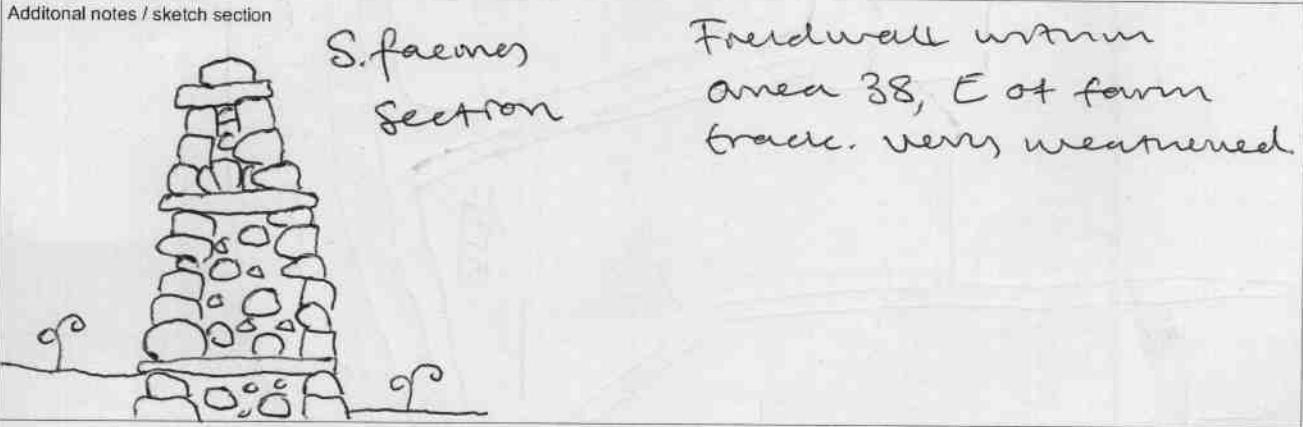 Additonal notes / sketch section
S. facing
Section
Fieldwall within
area 38, E of farm
track. Very weathered